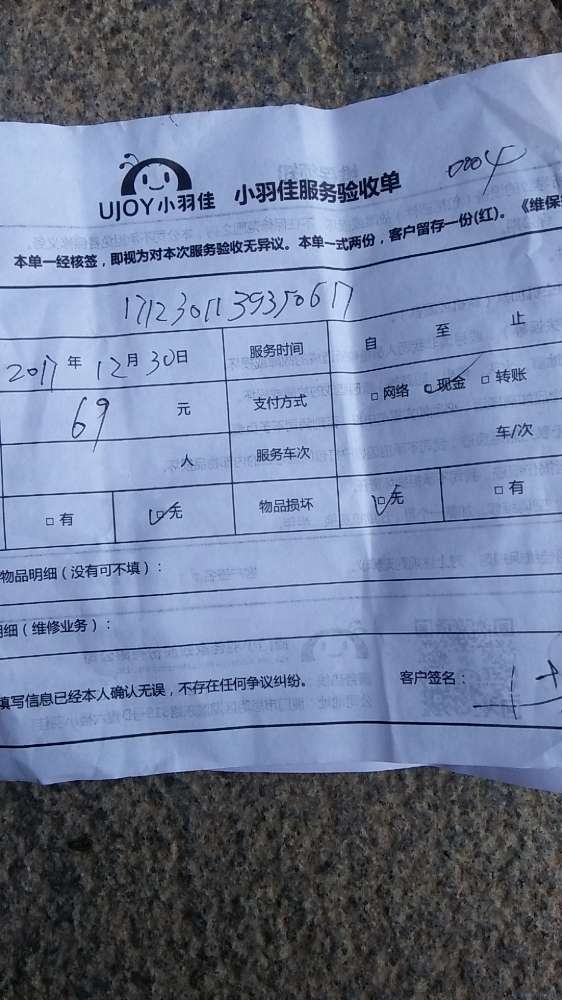 UJOY小羽佳 小羽佳服务验收单 0004
本单一经核签，即视为对本次服务验收无异议。本单一式两份，客户留存一份(红)。《维保
17123011393750617
2017年12月30日 服务时间 自 至 止
69 元 支付方式 □网络 □现金 □转账
人 服务车次 车/次
□有 □无 物品损坏 □无 □有
物品明细（没有可不填）：
明细（维修业务）：
填写信息已经本人确认无误，不存在任何争议纠纷。 客户签名：